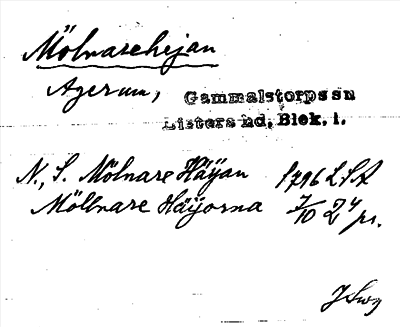 Mölnarehejan
Agerum, Gammalstorps sn
Listers hd, Blek. l.
N., S. Mölnare Häÿan 1796 LSA
Möllnare Häÿorna 7/10 24 pr.